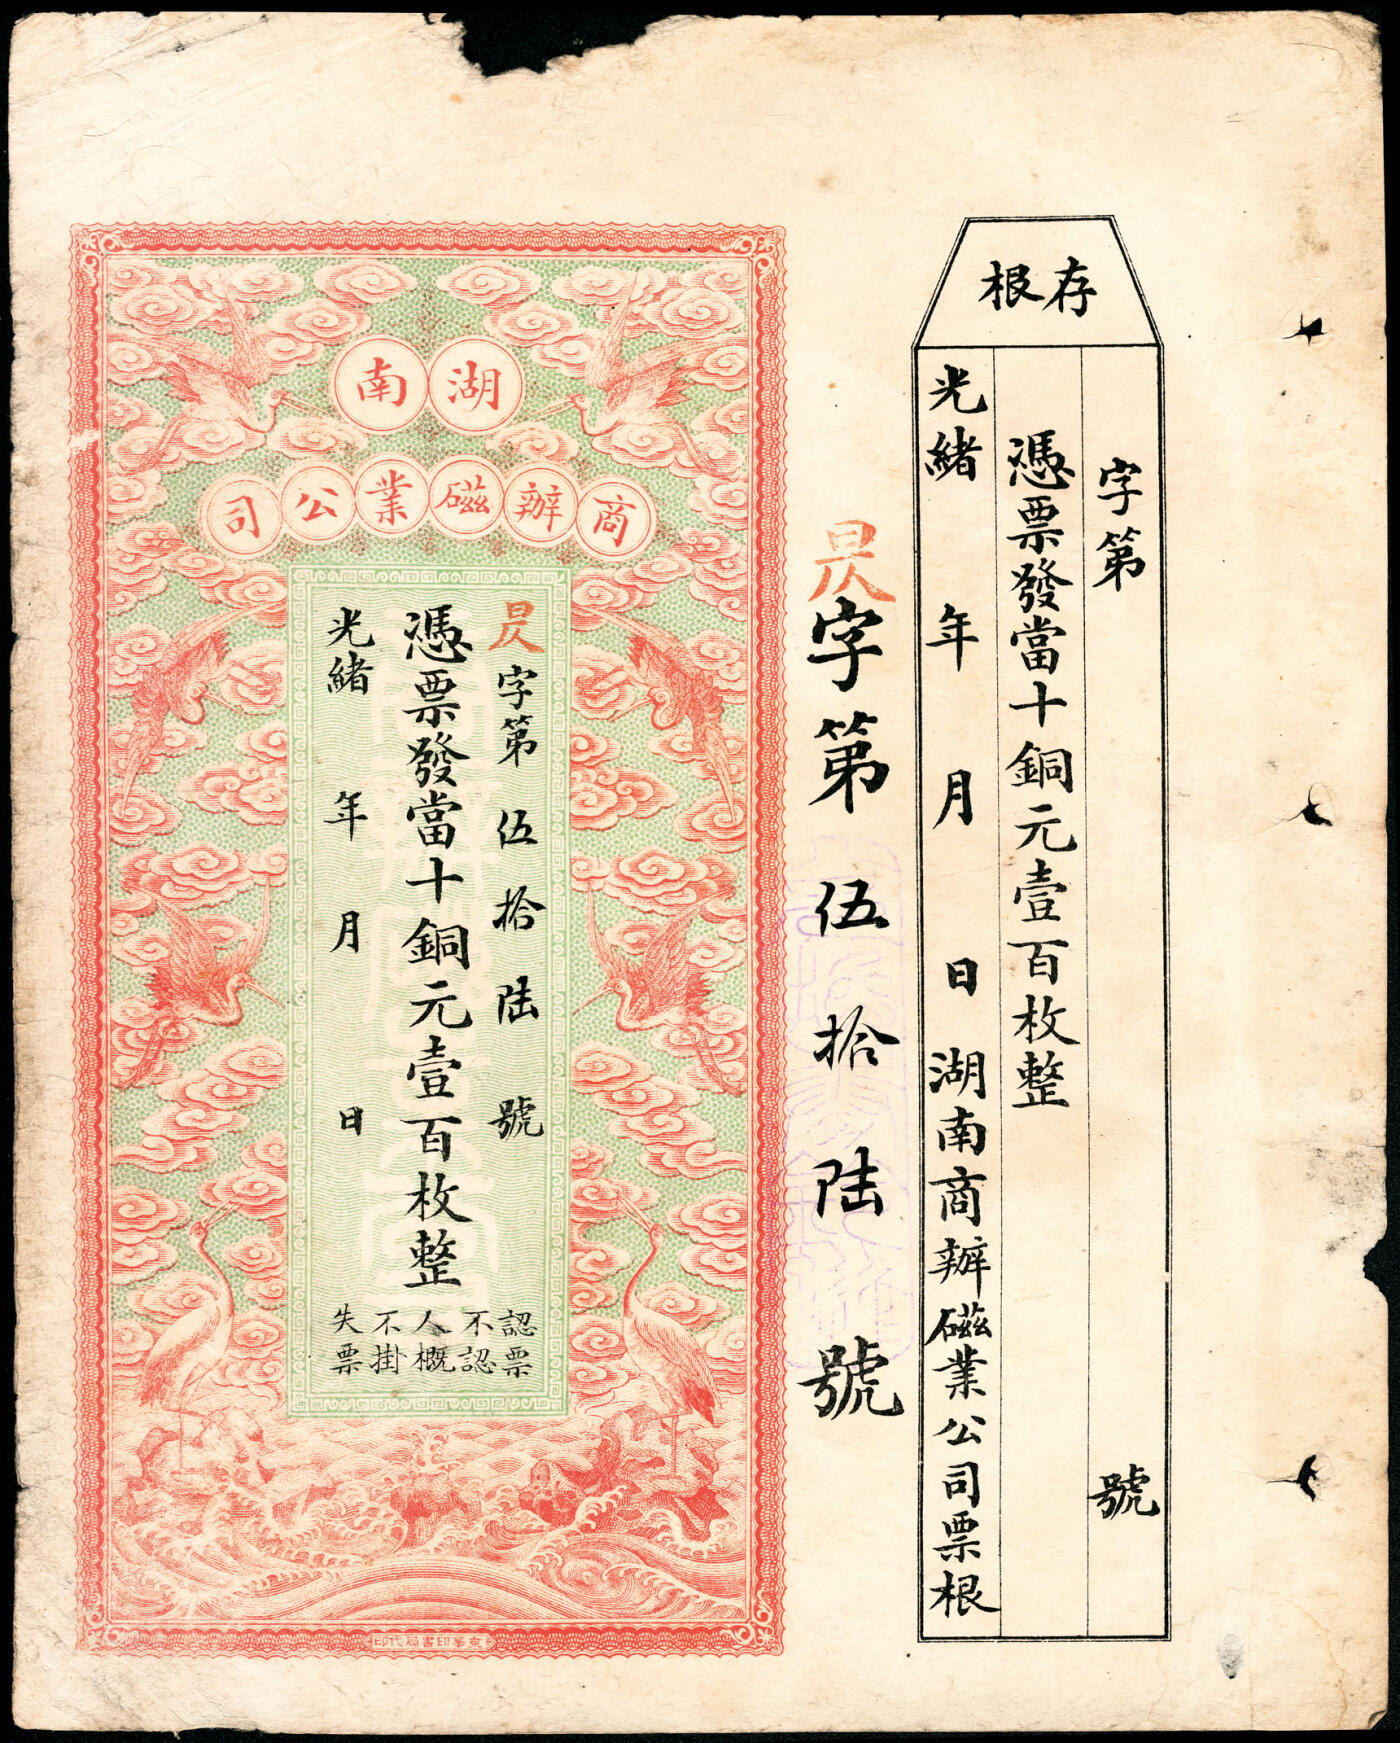 存根
字第 號
憑票發當十銅元壹百枚整
光緒 年 月 日湖南商辦磁業公司票根
昃字第伍拾陸號
湖南
商辦磁業公司
昃字第伍拾陸號
憑票發當十銅元壹百枚整
光緒 年 月 日
認票
不認
人概
不掛
失票
京華印書局代印